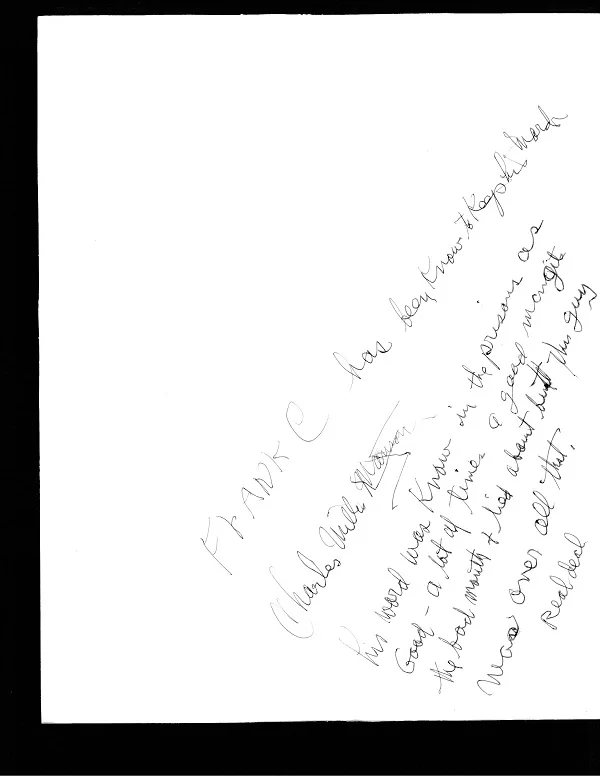 FRANK C has been know to keep his
Charles Mills Manson
his word was know in the prisons as
Good - a lot of time - a good men
the bad mouth & lied about but this guy
was over all that.
Real deal